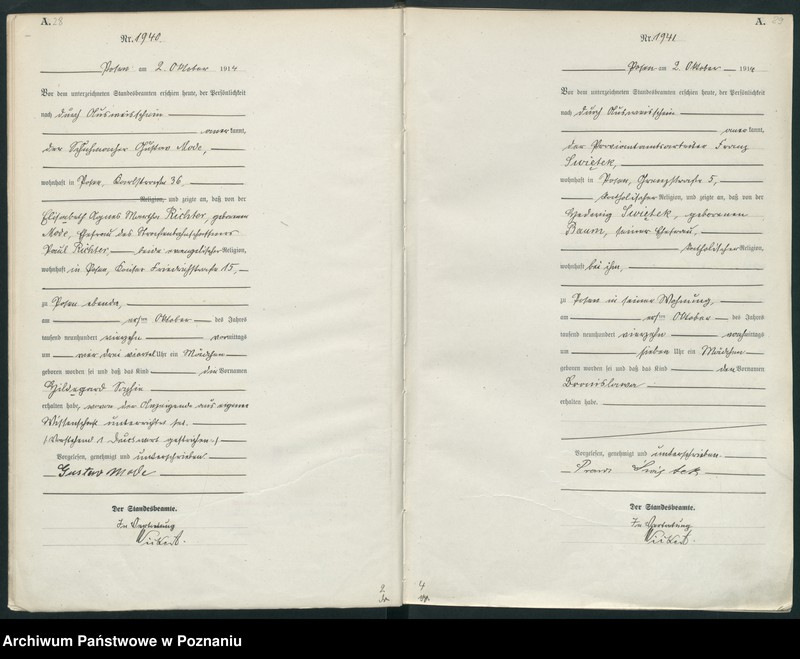 A. 28
Nr. 1940
Posen am 2. Oktober 1914
Vor dem unterzeichneten Standesbeamten erschien heute, der Persönlichkeit
nach durch Ausweisschein
anerkannt,
der Schuhmacher Gustav Mode,
wohnhaft in Posen, 36,
Religion, und zeigte an, daß von der
Elisabeth Agnes Martha Richter, geborenen
Mode, Ehefrau des Straßenbahnschaffners
Paul Richter, beide evangelischer Religion,
wohnhaft in Posen, Kaiser Friedrichstraße 15,
zu Posen ebenda,
am ersten Oktober des Jahres
tausend neunhundert vierzehn vormittags
um drei viertel Uhr ein Mädchen
geboren worden sei und daß das Kind die Vornamen
Hildegard Sophie
erhalten habe, wovon der Anzeigende aus eigener
Wissenschaft unterrichtet sei.
Vorstehend 1 Druckwort gestrichen
Vorgelesen, genehmigt und unterschrieben
Gustav Mode
Der Standesbeamte.
In Vertretung
A. 29
Nr. 1941
Posen am 2. Oktober 1914
Vor dem unterzeichneten Standesbeamten erschien heute, der Persönlichkeit
nach durch Ausweisschein
anerkannt,
der Proviantamtsarbeiter Franz
Świętek,
wohnhaft in Posen, Grenzstraße 5,
katholischer Religion, und zeigte an, daß von der
Hedwig Świętek, geborenen
Baum, seiner Ehefrau,
katholischer Religion,
wohnhaft bei ihm,
zu Posen in seiner Wohnung,
am ersten Oktober des Jahres
tausend neunhundert vierzehn nachmittags
um sieben Uhr ein Mädchen
geboren worden sei und daß das Kind den Vornamen
Bronislawa
erhalten habe.
Vorgelesen, genehmigt und unterschrieben.
Der Standesbeamte.
In Vertretung
Archiwum Państwowe w Poznaniu